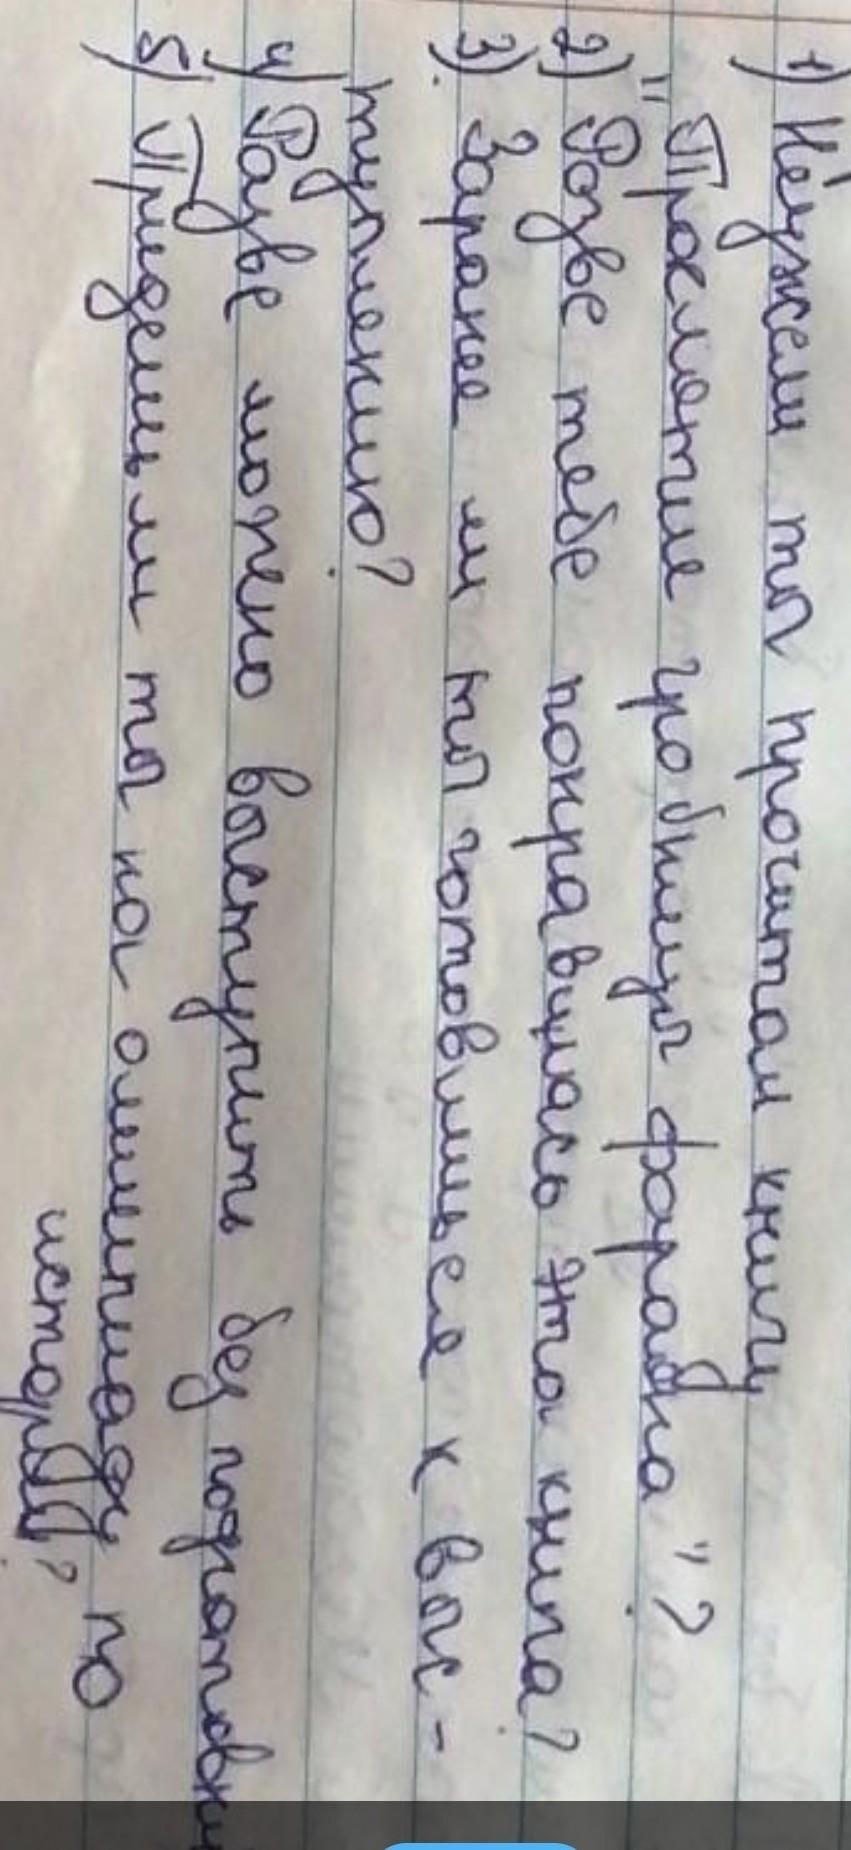 1) Неужели ты прочитал книгу
"Проклятие гробницы фараона"?
2) Розве тебе понравилась эта книга?
3) Заранее ли ты готовишься к выс-
туплению?
4) Разве можно выступить без подготовки
5) Придешь ли ты на олимпиаду по
истории?